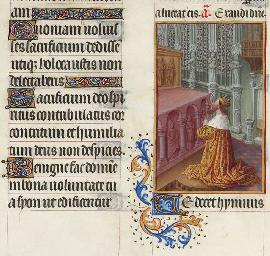 am
Quoniam voluis
ses sacrificium dedisse
utiq; holocaustis non
delectaberis
Sacrificium deo spi
ritus contribulatus cor
contritum et humilia
tum deus non despicies
Benigne fac domine
in bona voluntate tu
a syon ut edificentur
a Exaudi dne
Te decet hymnus